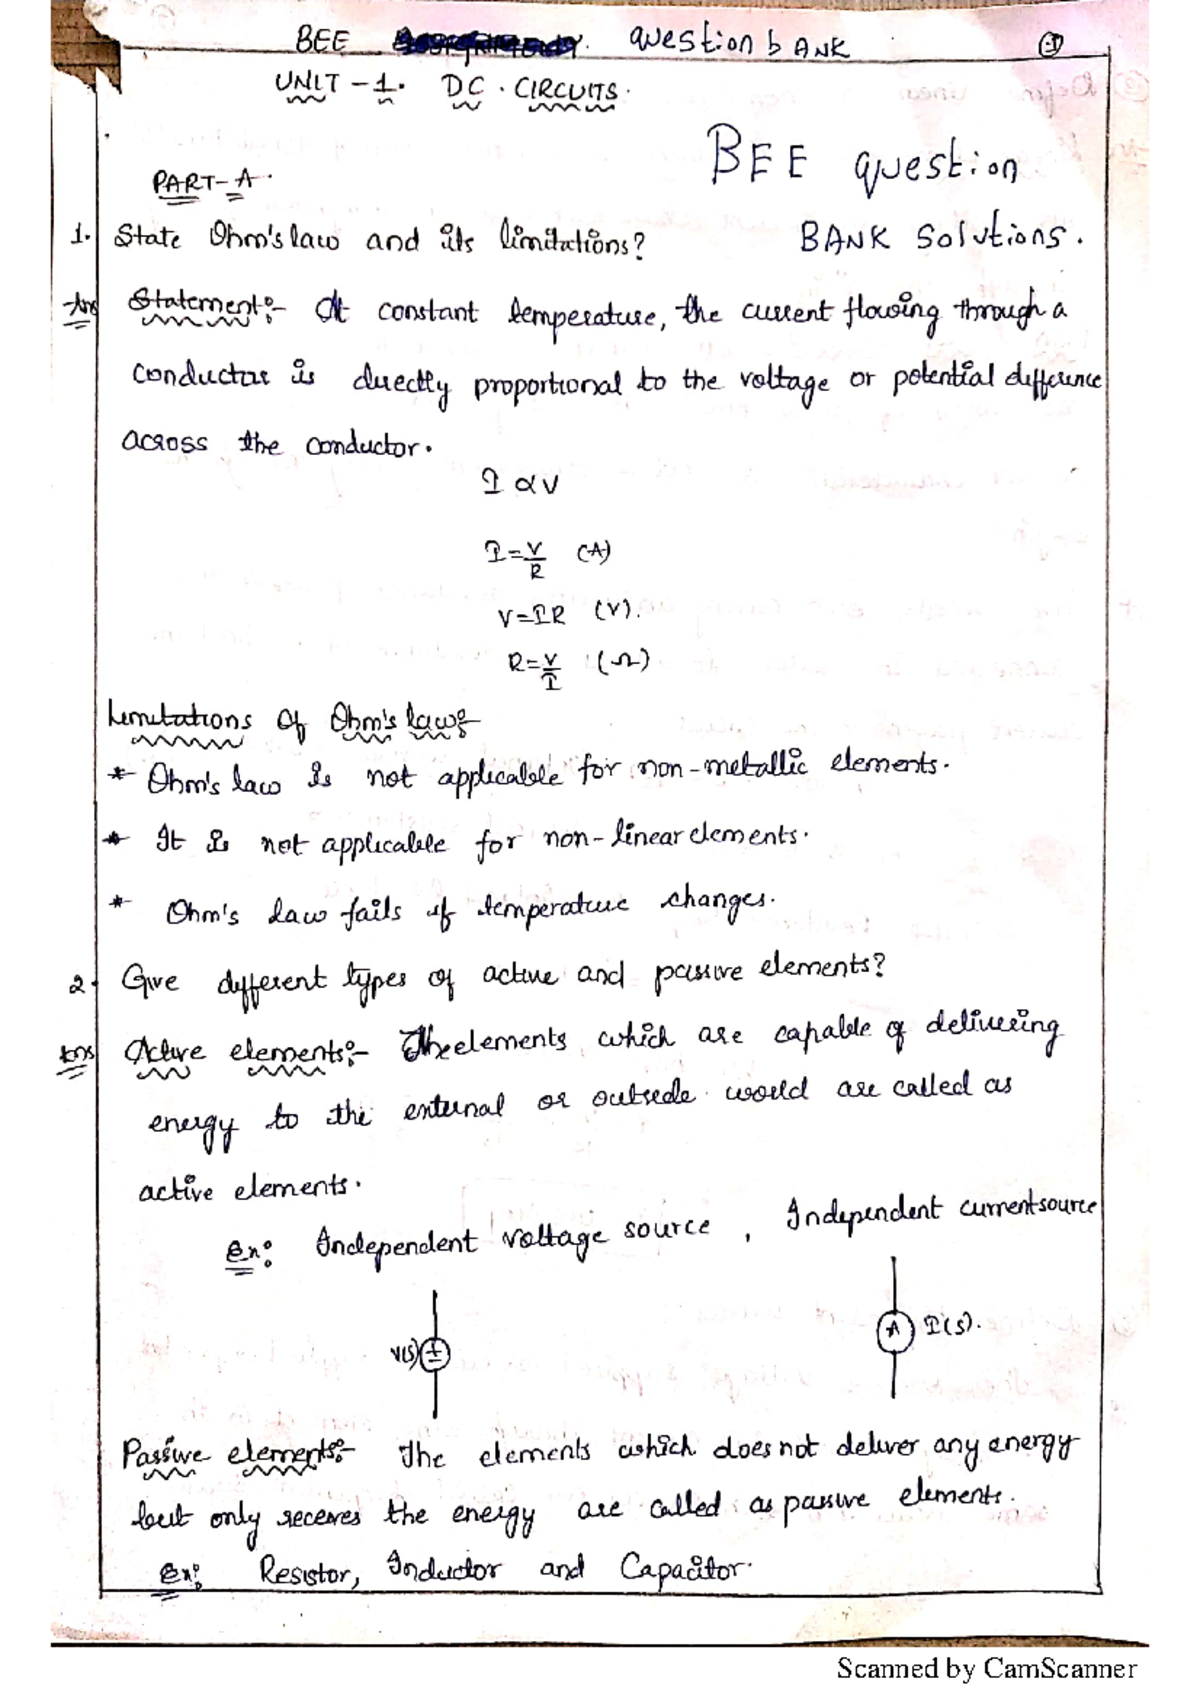 BEE question bANK
UNIT-1. DC. CIRCUITS.
BEE question
PART-A.
1. State Ohm's law and its limitations?
BANK Solutions.
Ans Statement:- At constant temperature, the current flowing through a
conductor is directly proportional to the voltage or potential difference
across the conductor.
I ∝ V
I = V/R (A)
V = IR (V).
R = V/I (Ω)
Limitations of Ohm's law:-
* Ohm's law is not applicable for non-metallic elements.
* It is not applicable for non-linear elements.
* Ohm's law fails if temperature changes.
2. Give different types of active and passive elements?
Ans Active elements:- The elements which are capable of delivering
energy to the external or outside world are called as
active elements.
Ex: Independent voltage source, Independent current source
V(s) + -
A I(s).
Passive elements:- The elements which does not deliver any energy
but only receives the energy are called as passive elements.
Ex: Resistor, Inductor and Capacitor.
Scanned by CamScanner